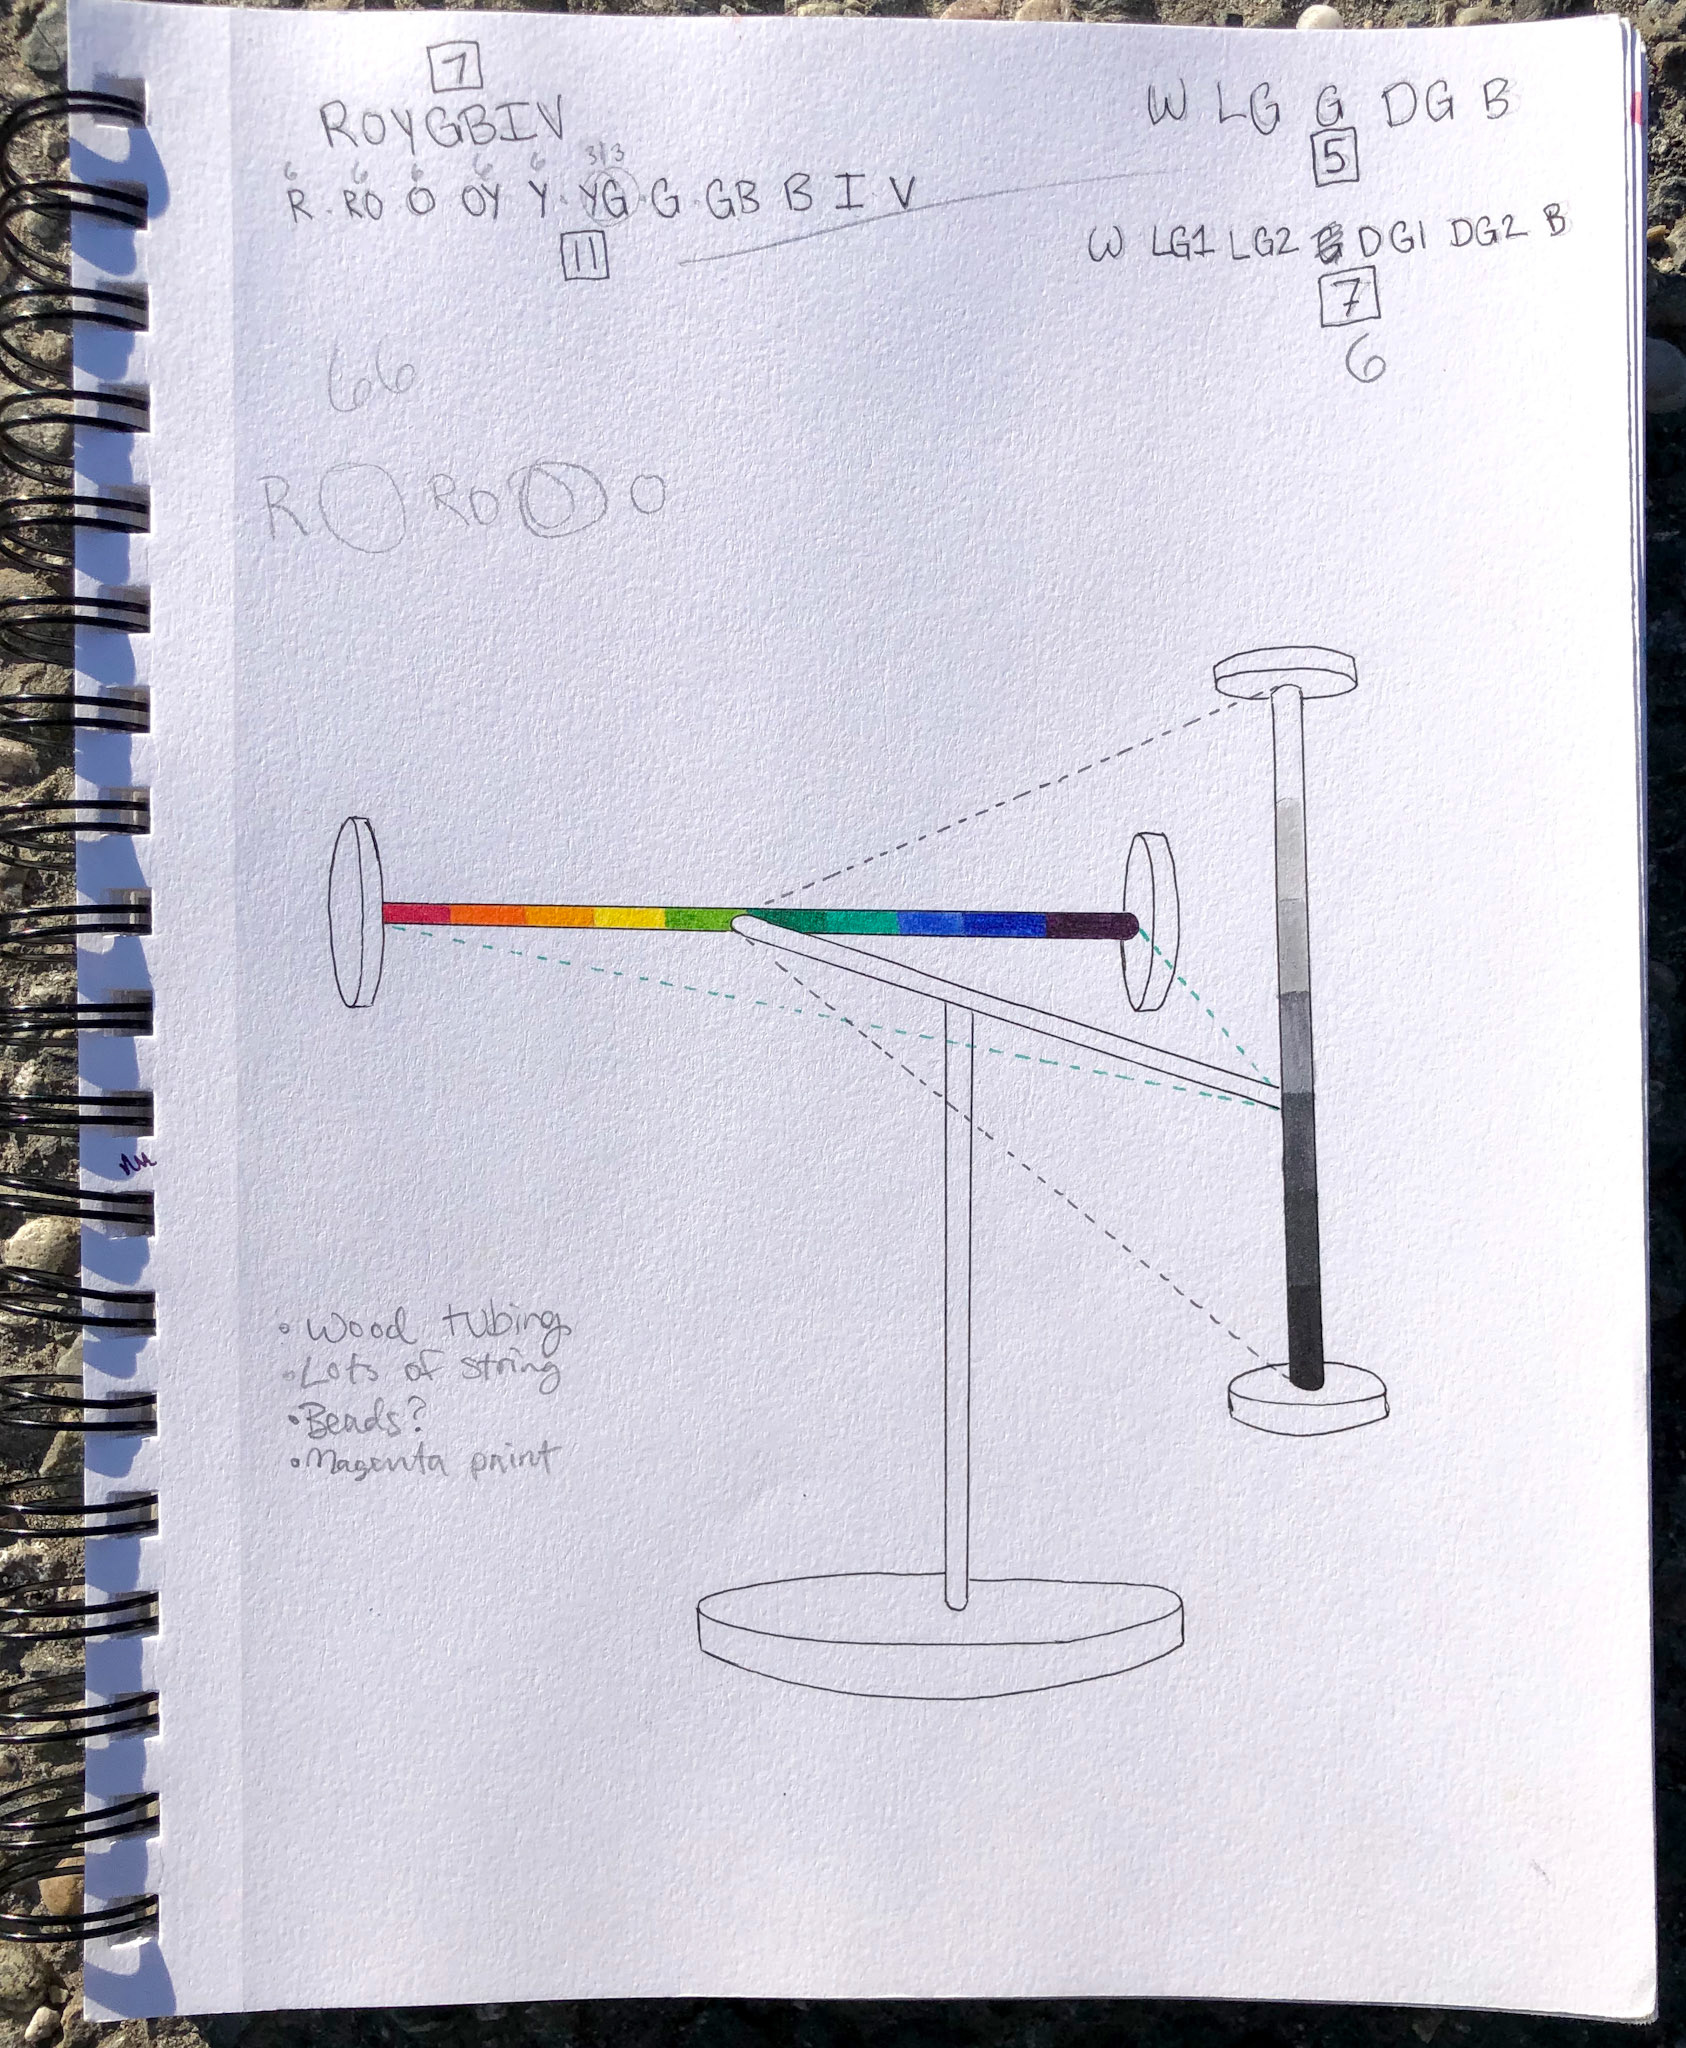 7
ROYGBIV
6 6 6 6 6 3|3
R · RO O OY Y · YG · G · GB B I V
11
66
R RO O
W LG G DG B
5
W LG1 LG2 G DG1 DG2 B
7
6
• Wood tubing
• Lots of string
• Beads?
• Magenta paint